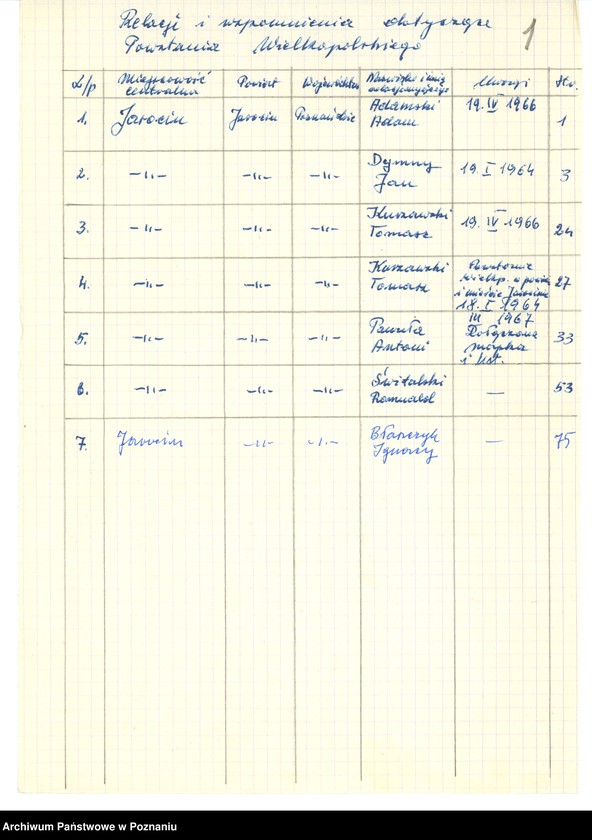 Relacje i wspomnienia dotyczące
Powstania Wielkopolskiego
1
L/p Miejscowość centralna Powiat Województwo Nazwisko i imię Uwagi Str.
1. Jarocin Jarocin Poznańskie Adamski Adam 19.IV 1966 1
2. —〃— —〃— —〃— Dymny Jan 19.I 1964 3
3. —〃— —〃— —〃— Kuszawski Tomasz 19.IV 1966 24
4. —〃— —〃— —〃— Kuszawski Tomasz Powstanie wielkp. w powiecie i mieście Jarocinie 18.I 1964 27
5. —〃— —〃— —〃— Pawuła Antoni III 1967 Dołączona mapka i list. 33
6. —〃— —〃— —〃— Świtalski Romuald — 53
7. Jarocin —〃— —〃— Błaszczyk Ignacy — 75
Archiwum Państwowe w Poznaniu